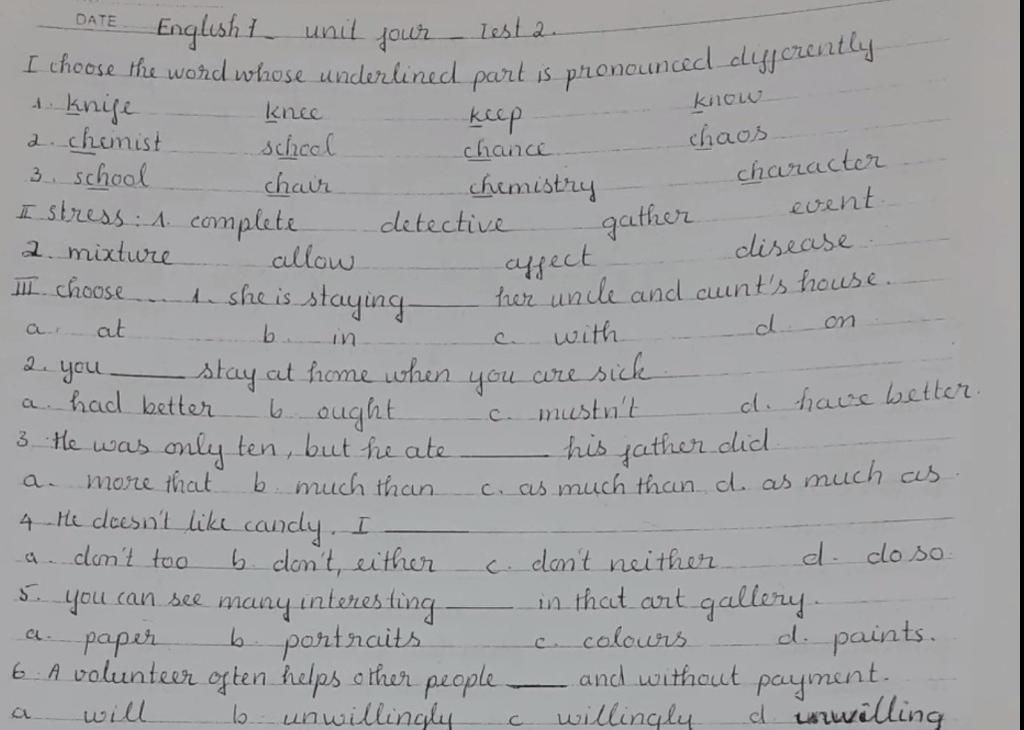 DATE English 1 unit four Test 2.
I choose the word whose underlined part is pronounced differently
1. knife knee keep know
2. chemist school chance chaos
3. school chair chemistry character
II stress: 1. complete detective gather event.
2. mixture allow affect disease.
III. choose ... 1. she is staying ____ her uncle and aunt's house.
a. at b. in c. with d. on
2. you ____ stay at home when you are sick
a. had better b ought c. mustn't d. have better.
3. He was only ten, but he ate ____ his father did
a. more that b much than c. as much than d. as much as.
4 He doesn't like candy. I ____
a. don't too b. don't, either c. don't neither d. do so.
5. you can see many interesting ____ in that art gallery.
a. paper b. portraits c. colours d. paints.
6. A volunteer often helps other people ____ and without payment.
a will b unwillingly c willingly d unwilling